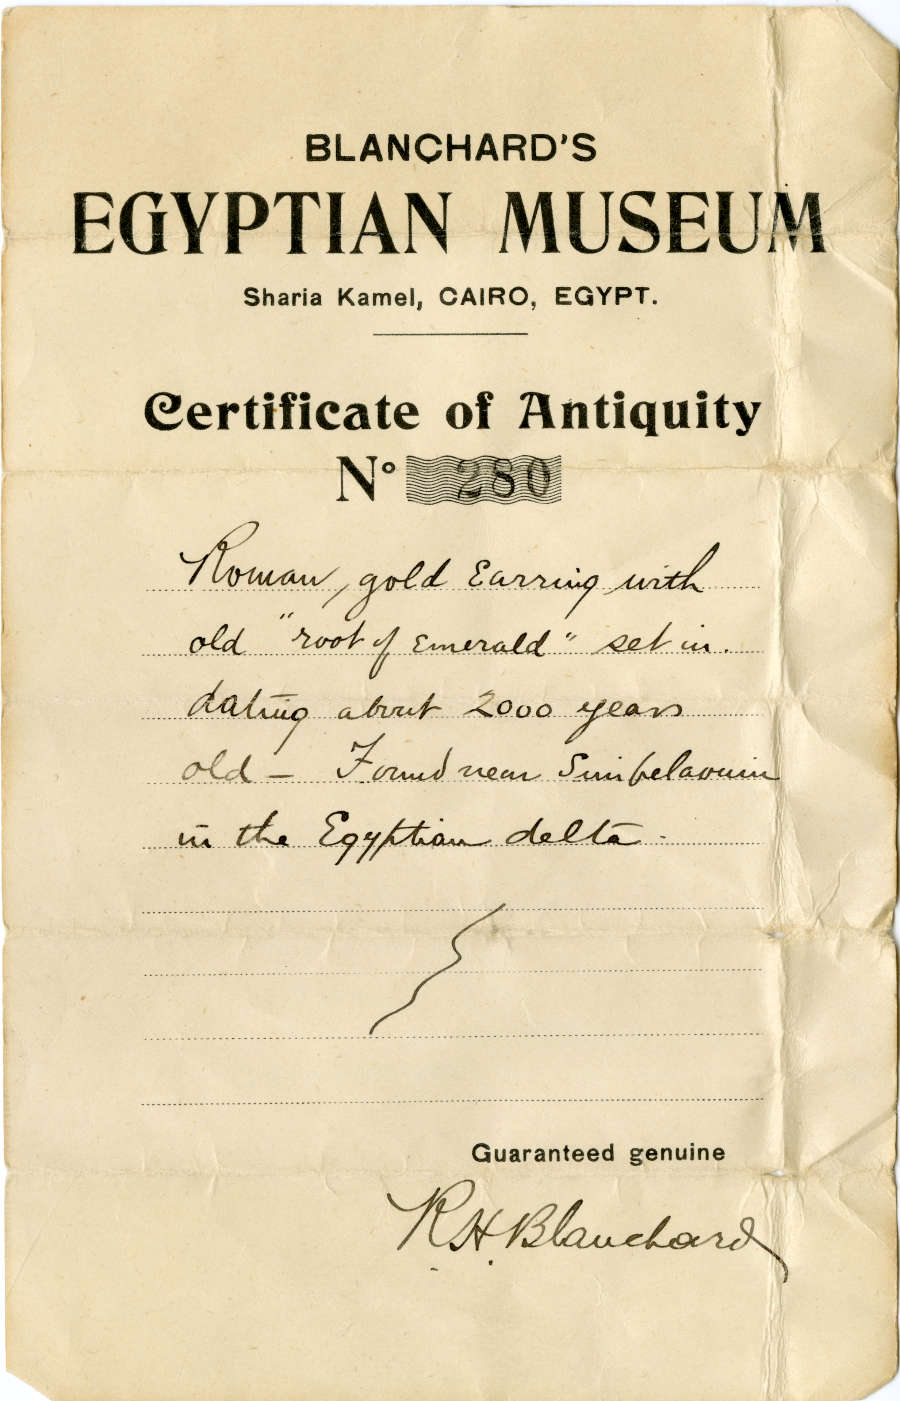 BLANCHARD'S
EGYPTIAN MUSEUM
Sharia Kamel, CAIRO, EGYPT.
Certificate of Antiquity
No 280
Roman, gold Earring with
old "root of Emerald" set in.
dating about 2000 years
old — Found near Simbelawin
in the Egyptian delta.
Guaranteed genuine
R.H. Blanchard